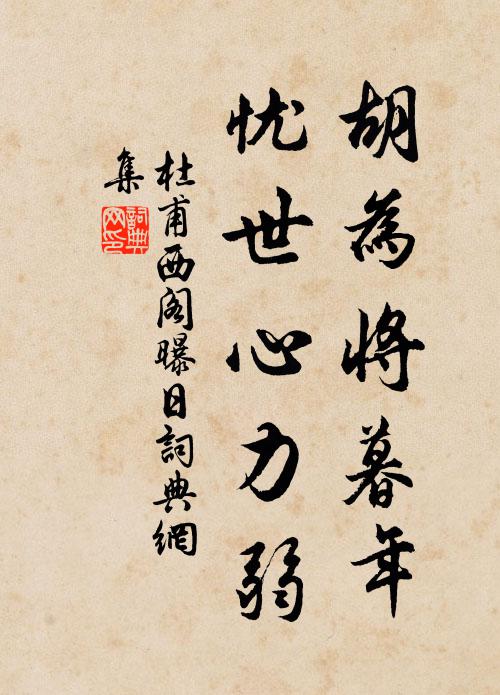 胡為將暮年
忧世心力弱
杜甫西阁曝日詞典網
集
詞典
网印